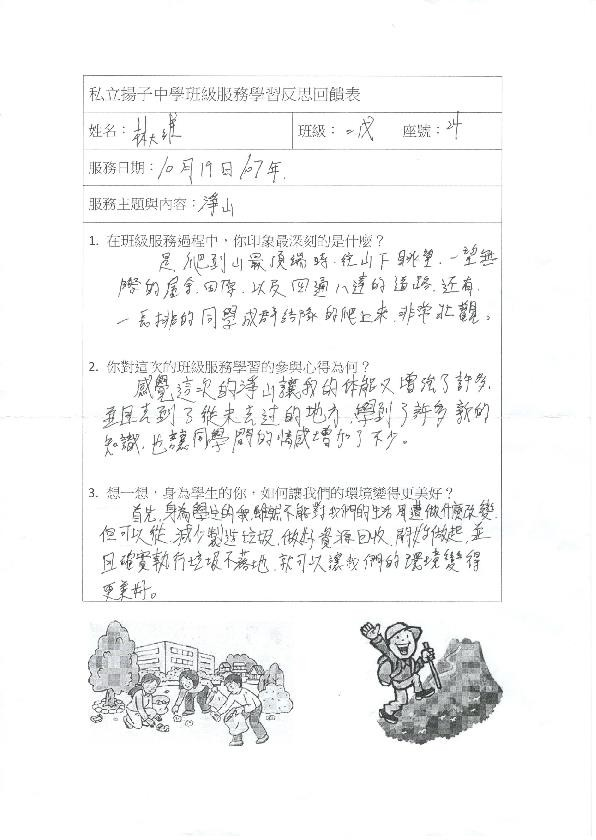 私立揚子中學班級服務學習反思回饋表
姓名：林大維 班級：二戊 座號：24
服務日期：10月19日107年.
服務主題與內容：淨山
1. 在班級服務過程中，你印象最深刻的是什麼？
是爬到山最頂端時,往山下眺望,一望無
際的屋舍.田原.以及四通八達的道路.還有.
一長排的同學成群結隊的爬上來,非常壯觀。
2. 你對這次的班級服務學習的參與心得為何？
感覺這次的淨山讓我的体能又增強了許多,
並且去到了從未去过的地方,學到了許多新的
知識,也讓同學間的情感增加了不少。
3. 想一想，身為學生的你，如何讓我們的環境變得更美好？
首先,身為學生的我,雖然不能對我們的生活周遭做什麼改變,
但可以從,減少製造垃圾,做好資源回收,開始做起,並
且確實執行垃圾不落地,就可以讓我們的環境變得
更美好。